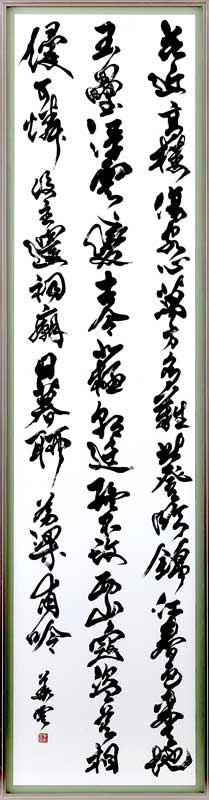 花近高樓傷客心萬方多難此登臨錦江春色来天地
玉壘浮雲變古今北極朝廷終不改西山寇盗莫相
侵可憐後主還祠廟日暮聊為梁甫吟